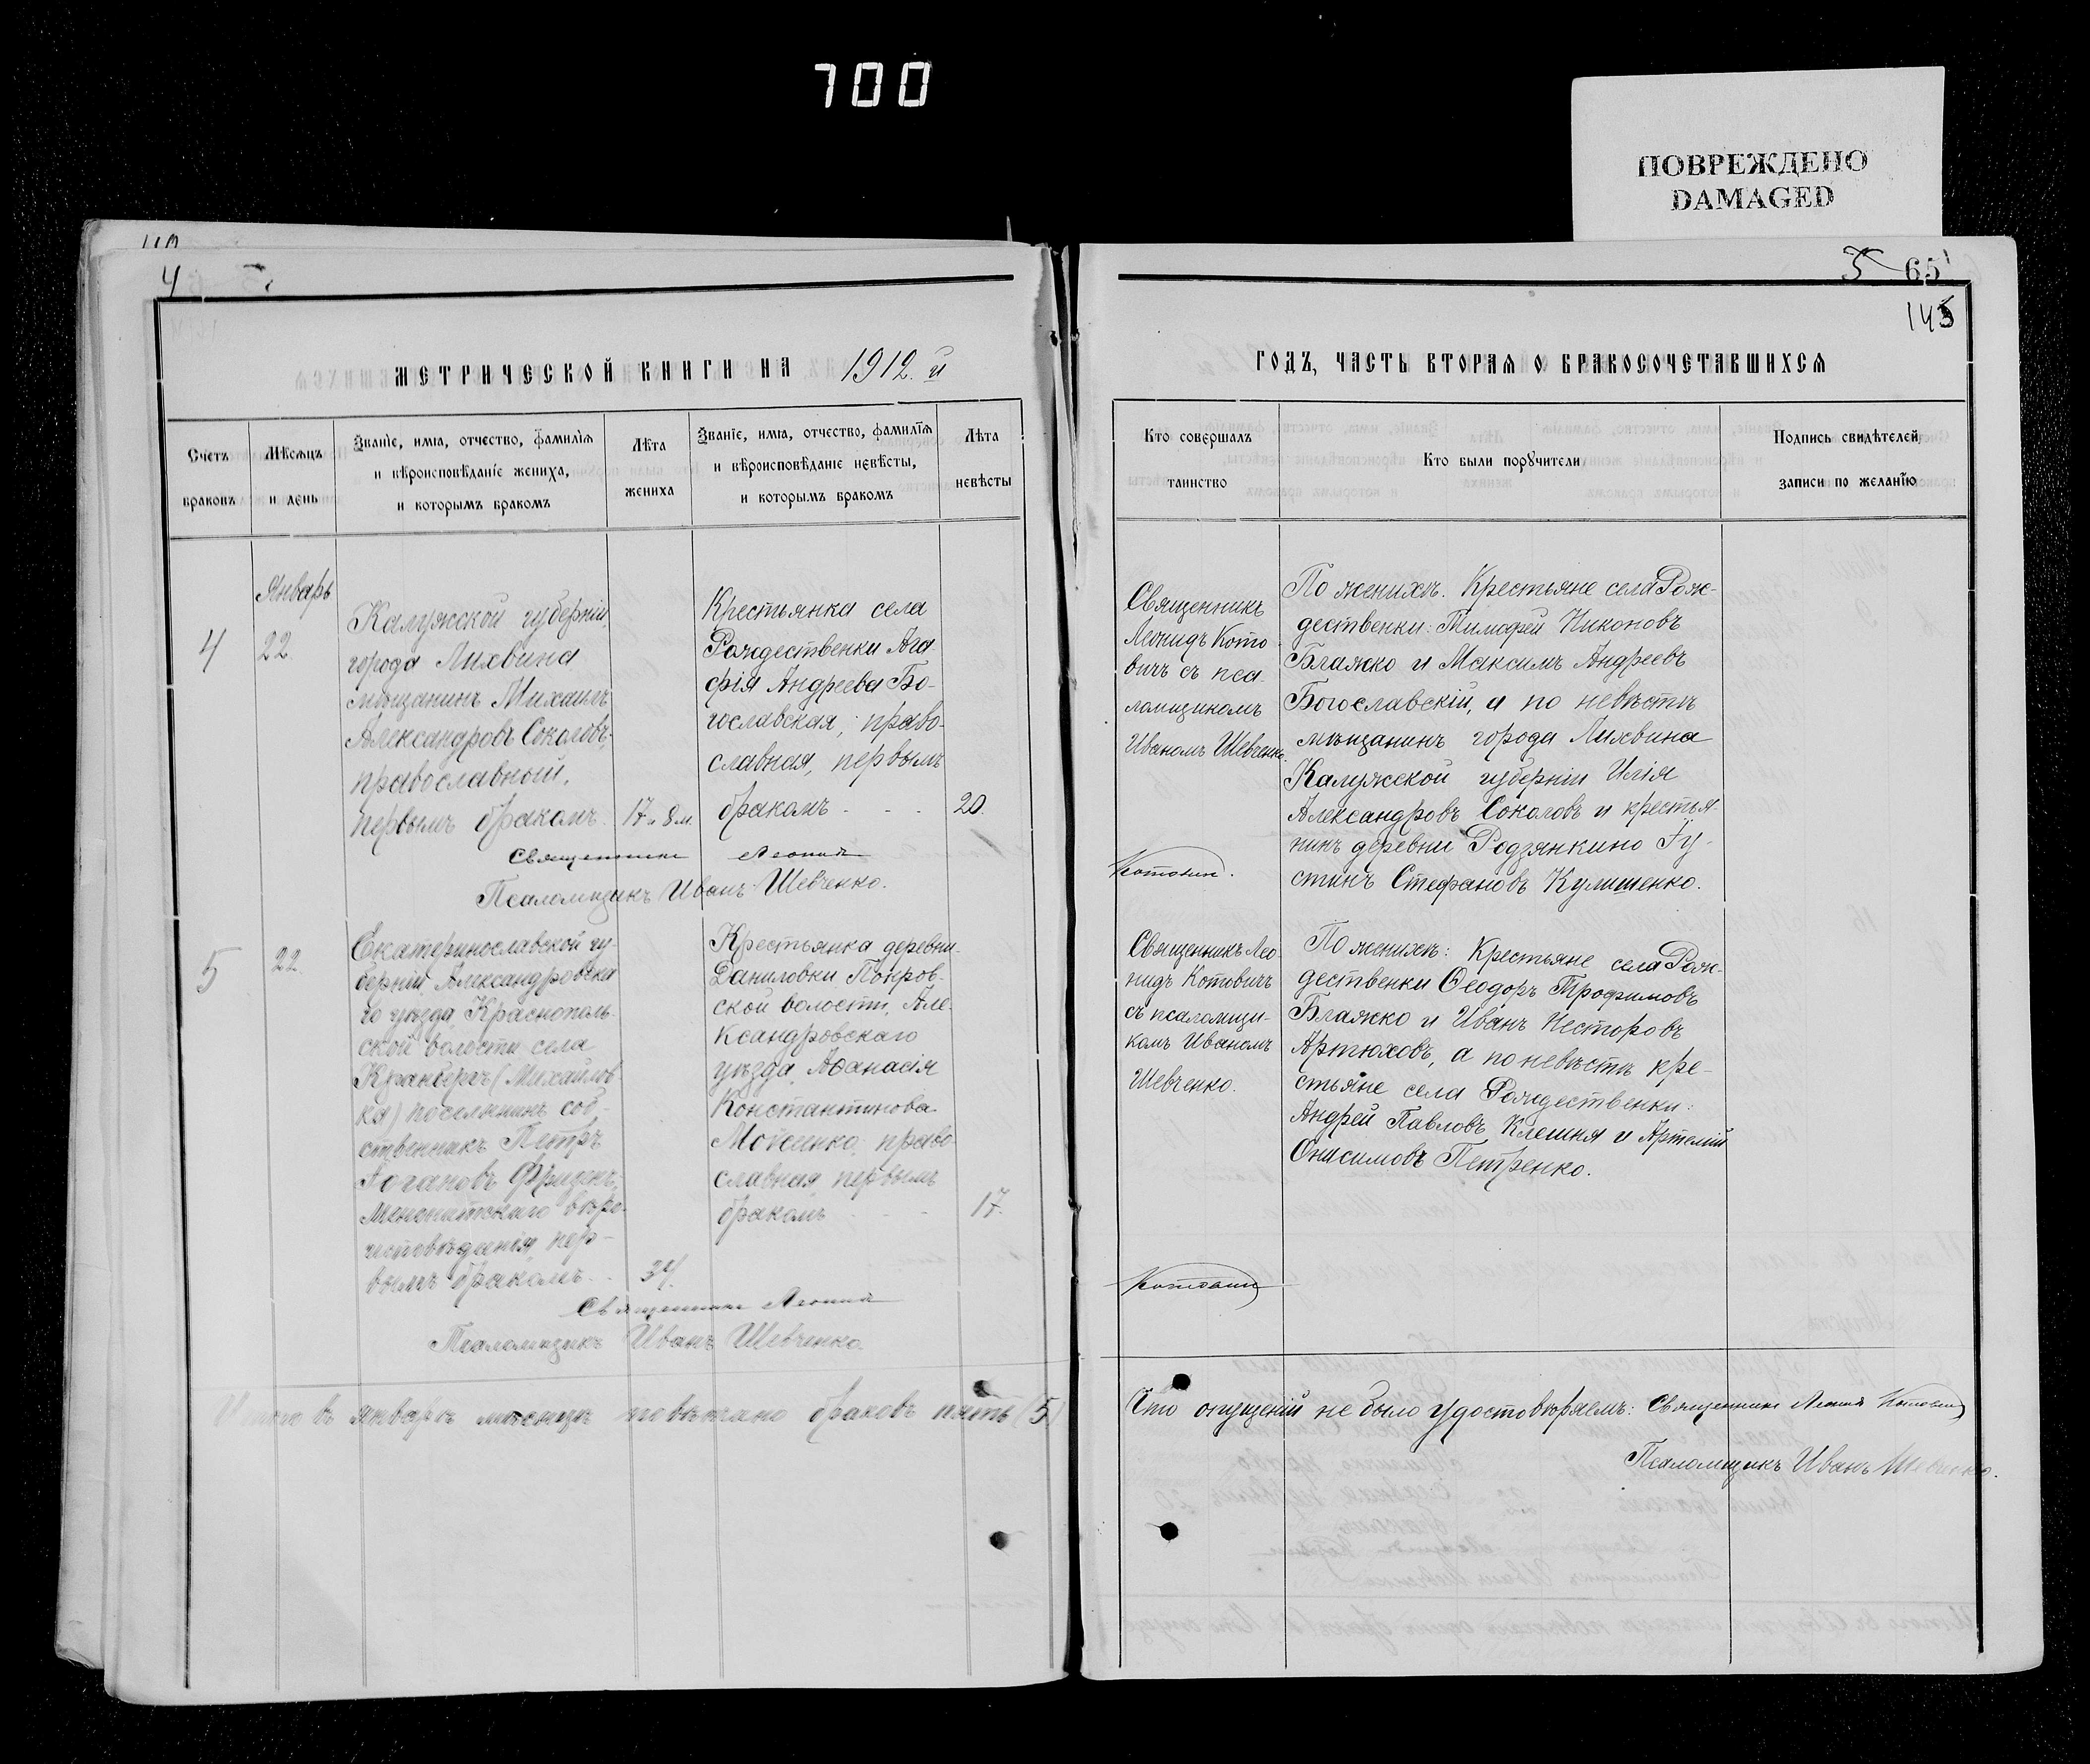 700
ПОВРЕЖДЕНО
DAMAGED
4
5
65
145
МЕТРИЧЕСКОЙ КНИГИ НА 1912.й
ГОДЪ, ЧАСТЬ ВТОРАЯ О БРАКОСОЧЕТАВШИХСЯ
Счетъ
браковъ
Мѣсяцъ
и день
Званіе, имя, отчество, фамилія
и вѣроисповѣданіе жениха,
и которымъ бракомъ
Лѣта
жениха
Званіе, имя, отчество, фамилія
и вѣроисповѣданіе невѣсты,
и которымъ бракомъ
Лѣта
невѣсты
Кто совершалъ
таинство
Кто были поручители
Подпись свидѣтелей
записи по желанію
4
Январь
22
Калужской губерніи,
города Лихвина
мѣщанинъ Михаилъ
Александровъ Соколовъ,
православной,
первымъ бракомъ.
17 и 8 м.
Крестьянка села
Рождественки Ага
фія Андреева Бо-
гославская, право-
славная, первымъ
бракомъ - - -
20.
Священникъ
Леонидъ Кото
вичъ съ пса-
ломщикомъ
Иваномъ Шевченко.
По женихѣ. Крестьяне села Рож-
дественки: Тимофей Никоновъ
Блажко и Максимъ Андреевъ
Богославскій, а по невѣстѣ
мѣщанинъ города Лихвина
Калужской губерніи Илія
Александровъ Соколовъ и крестья
нинъ деревни Родзянкино Іу-
стинъ Стефановъ Кулишенко.
Священникъ Леонид Котович.
Псаломщикъ Иванъ Шевченко.
5
22
Екатеринославской гу-
берніи Александровска
го уѣзда, Краснополь-
ской волости села
(Михайлов-
ка) поселянинъ соб-
ственникъ Петръ
Іогановъ Фризенъ,
Менонитскаго вѣро-
исповѣденія, пер-
вымъ бракомъ. -
34.
Крестьянка деревни
Даниловки Покров-
ской волости, Але-
ксандровскаго
уѣзда, Аѳанасія
Константинова
Мойсенко, право-
славная, первымъ
бракомъ - - -
17.
Священникъ Лео-
нидъ Котовичъ
съ псаломщи-
комъ Иваномъ
Шевченко.
По женихѣ: Крестьяне села Рож-
дественки Ѳеодоръ Трофимовъ
Блажко и Иванъ Несторовъ
Артюховъ, а по невѣстѣ кре-
стьяне села Рождественки:
Андрей Павловъ Клешня и Артемій
Онисимовъ Петренко.
Священникъ Леонид Котович
Псаломщикъ Иванъ Шевченко.
Итого въ январѣ мѣсяцѣ повѣнчано браковъ пять (5)
Что опущеній не было удостовѣряемъ: Священникъ Леонид Котович
Псаломщикъ Иванъ Шевченко.